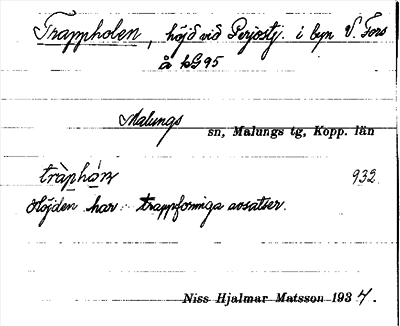 Trappholen, höjd vid Perjostj. i byn V. Fors
å kG95
Malungs sn, Malungs tg, Kopp. län
932
Höjden har trappformiga avsatser.
Niss Hjalmar Matsson 1937.